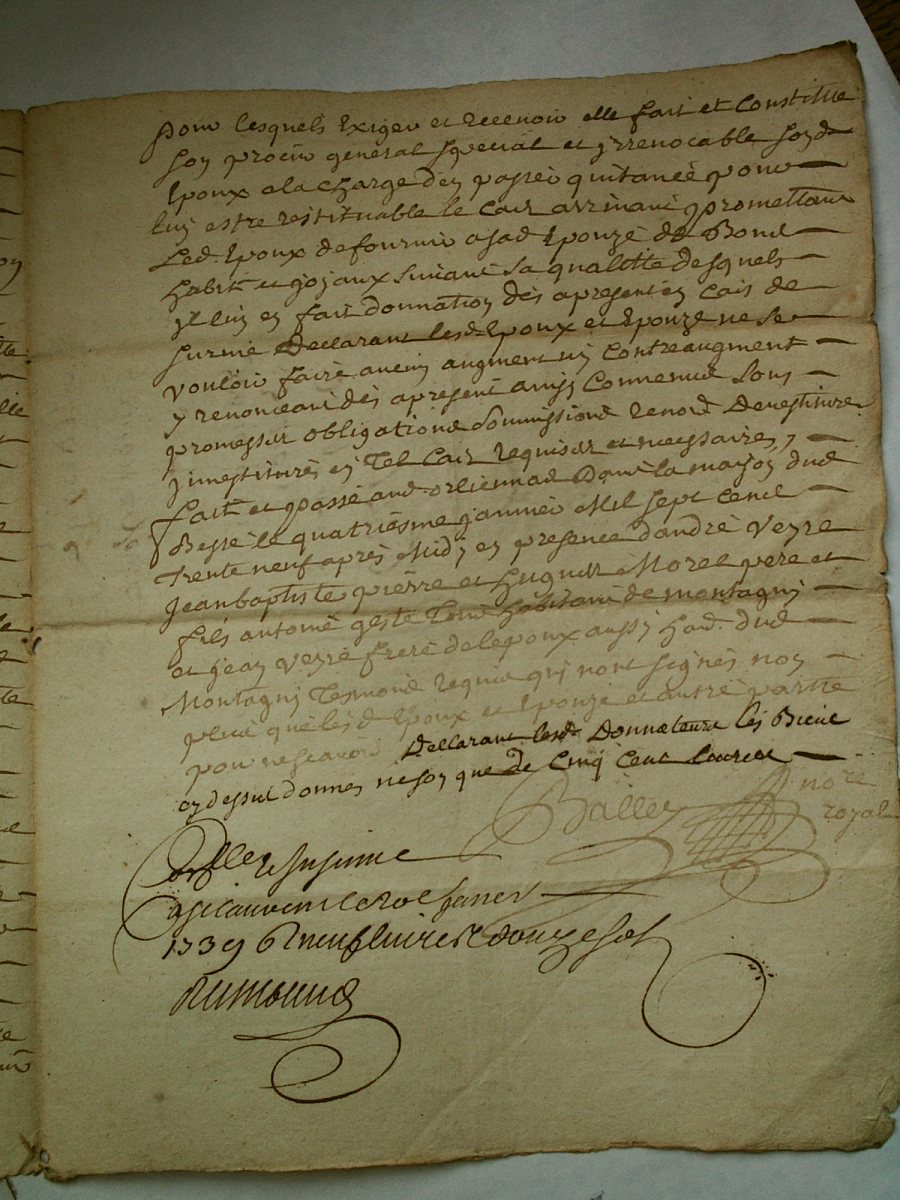 pour lesquels Exiger et recevoir elle fait et Constitue
son procur general special et yrrevocable sond
Epoux a la charge den passer quitance pour
luy estre restituable le cair arrivant promettant
Led. Epoux de fournir a sad Epouze de Bons
habits et joyaux suivant sa qualitte desquels
jl luy en fait donnation dès apresent en cais de
survie Declarant lesd. Epoux et Epouze ne se
vouloir faire aucun augment ny Contreaugment
y renonceant dès apresent ainsy Convenus sous
promesses obligations Soumissions renonc Devestiture
jnvestitures en Tel Cair requises et necessaires,
fait et passé aud. orliennas dans la mayson dud
Bessé le quatriesme janvier Mil sept Cents
Trente neuf après Midy en presence d'andré Veyre
Jean baptiste pierre et hugues Morel pere et
fils antoine geste Tous habitans de montagny
et jean Veyre frere de lepoux aussy had. dud
Montagny Tesmoins requis qui nont signés non
plus que lesd Epoux et Epouze et autre partie
pour ne scavoir Declarant lesd. Donnateurs les Biens
cy dessus donnés ne son que de Cinq Cent Livres
Balley nore
royal
Conlle & Insinué
janvier
1739 neuf livres douze sols